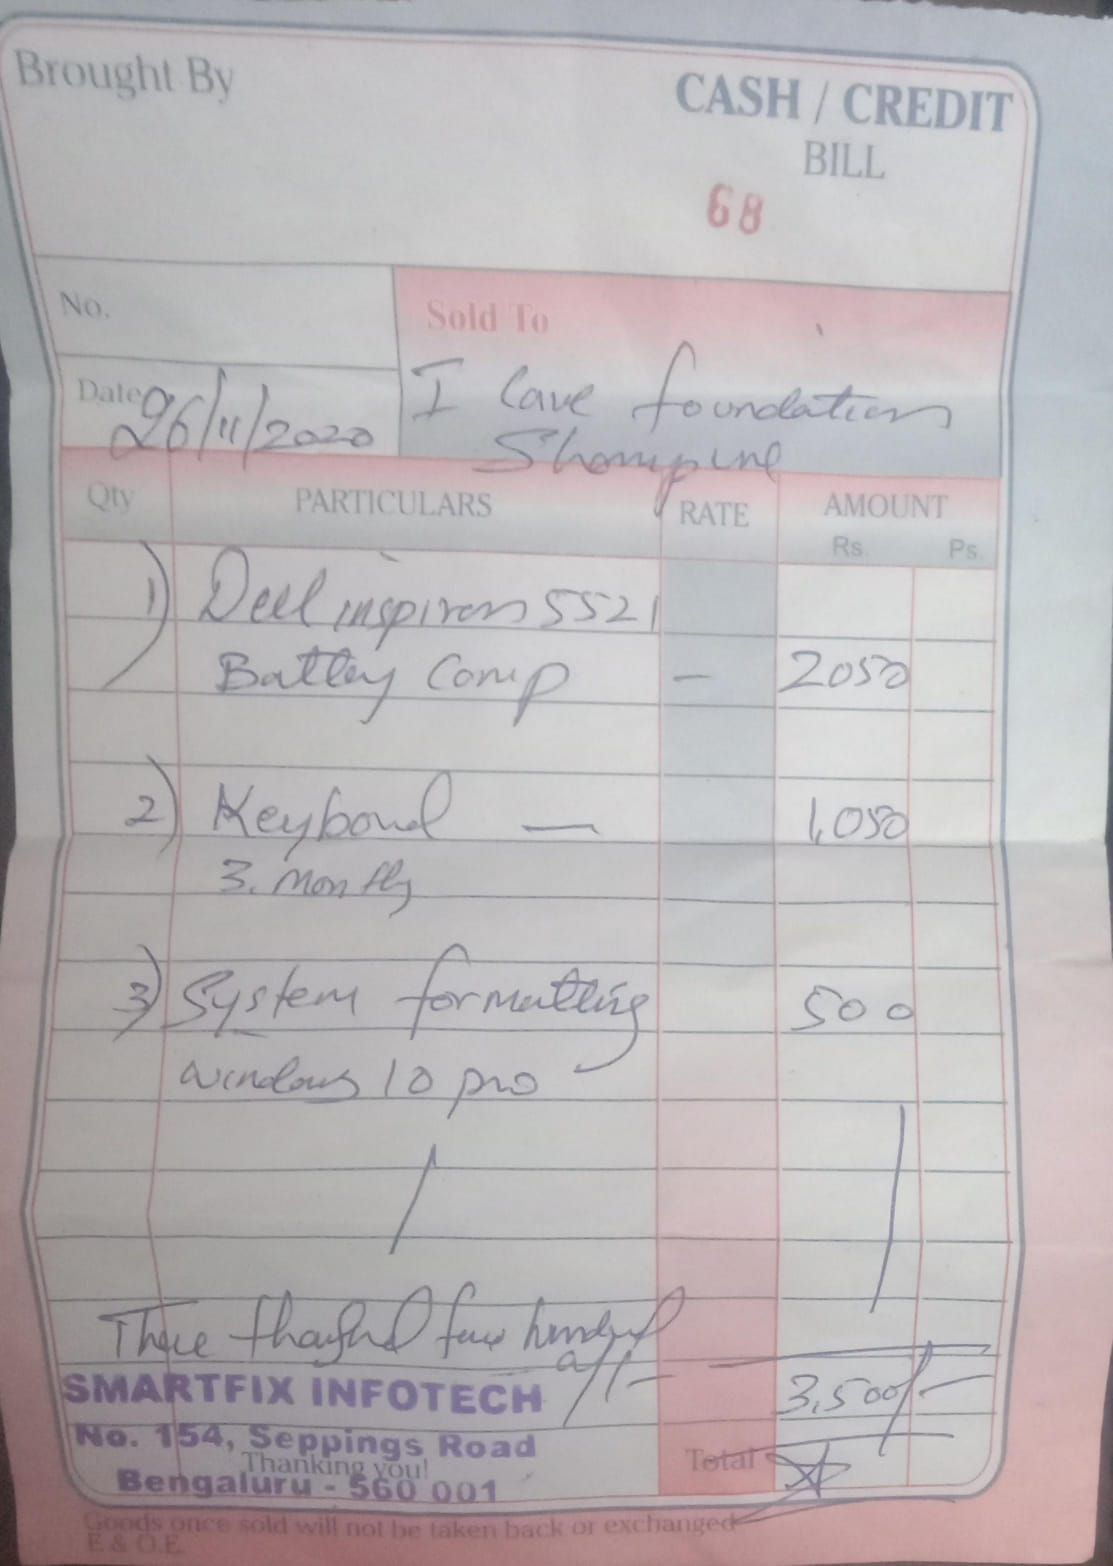 Brought By
CASH / CREDIT
BILL
68
No.
Sold To
Date 26/11/2020
I Care foundation
Qty PARTICULARS RATE AMOUNT
Rs. Ps.
1) Dell inspiron 5521
Battery Comp — 2050
2) Keyboard — 1,050
3. Monthly
3) System formatting 500
windows 10 pro
Three hundred
3,500/-
SMARTFIX INFOTECH
No. 154, Seppings Road
Thanking you!
Total
Bengaluru - 560 001
Goods once sold will not be taken back or exchanged
E & O.E.